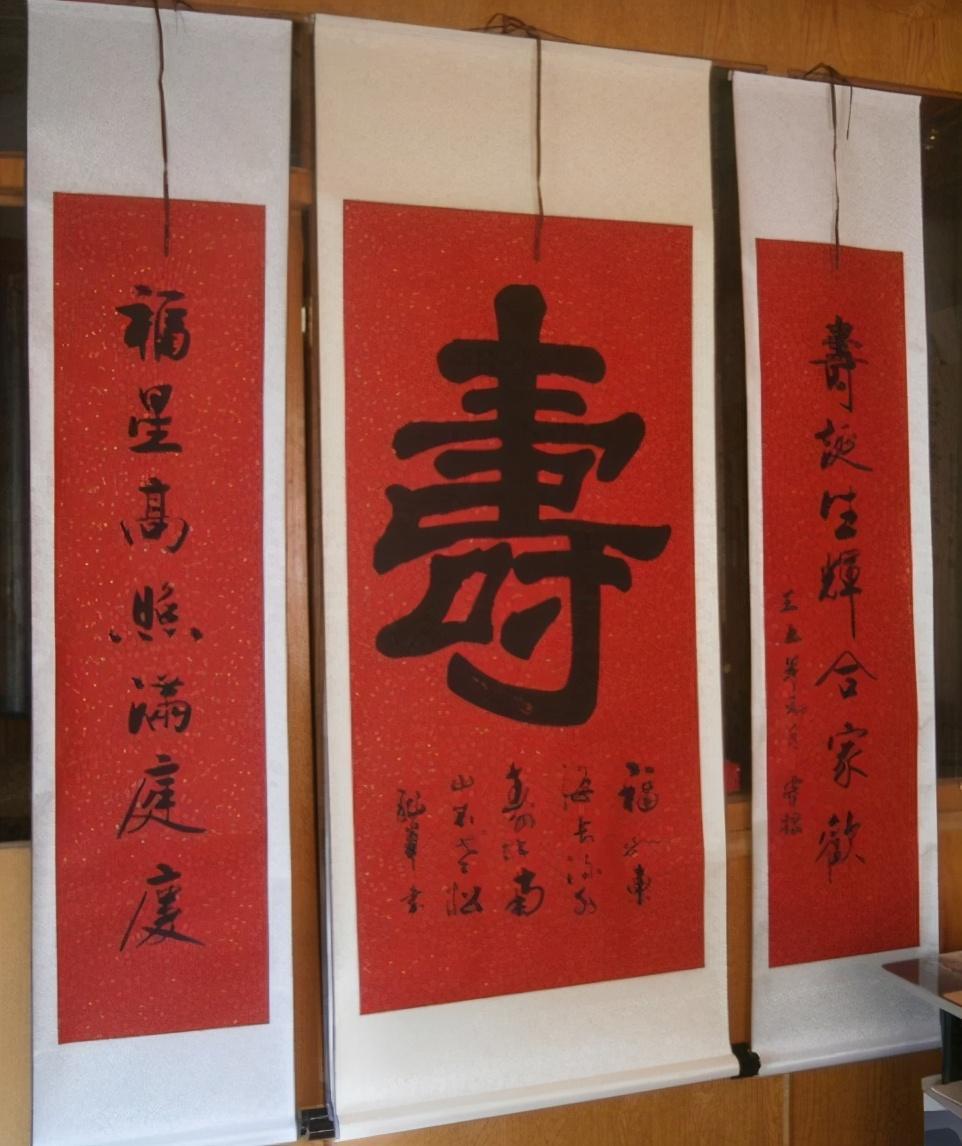 壽誕生輝合家歡
壽
福如東
海長流水
寿比南
山不老松
福星高照滿庭慶